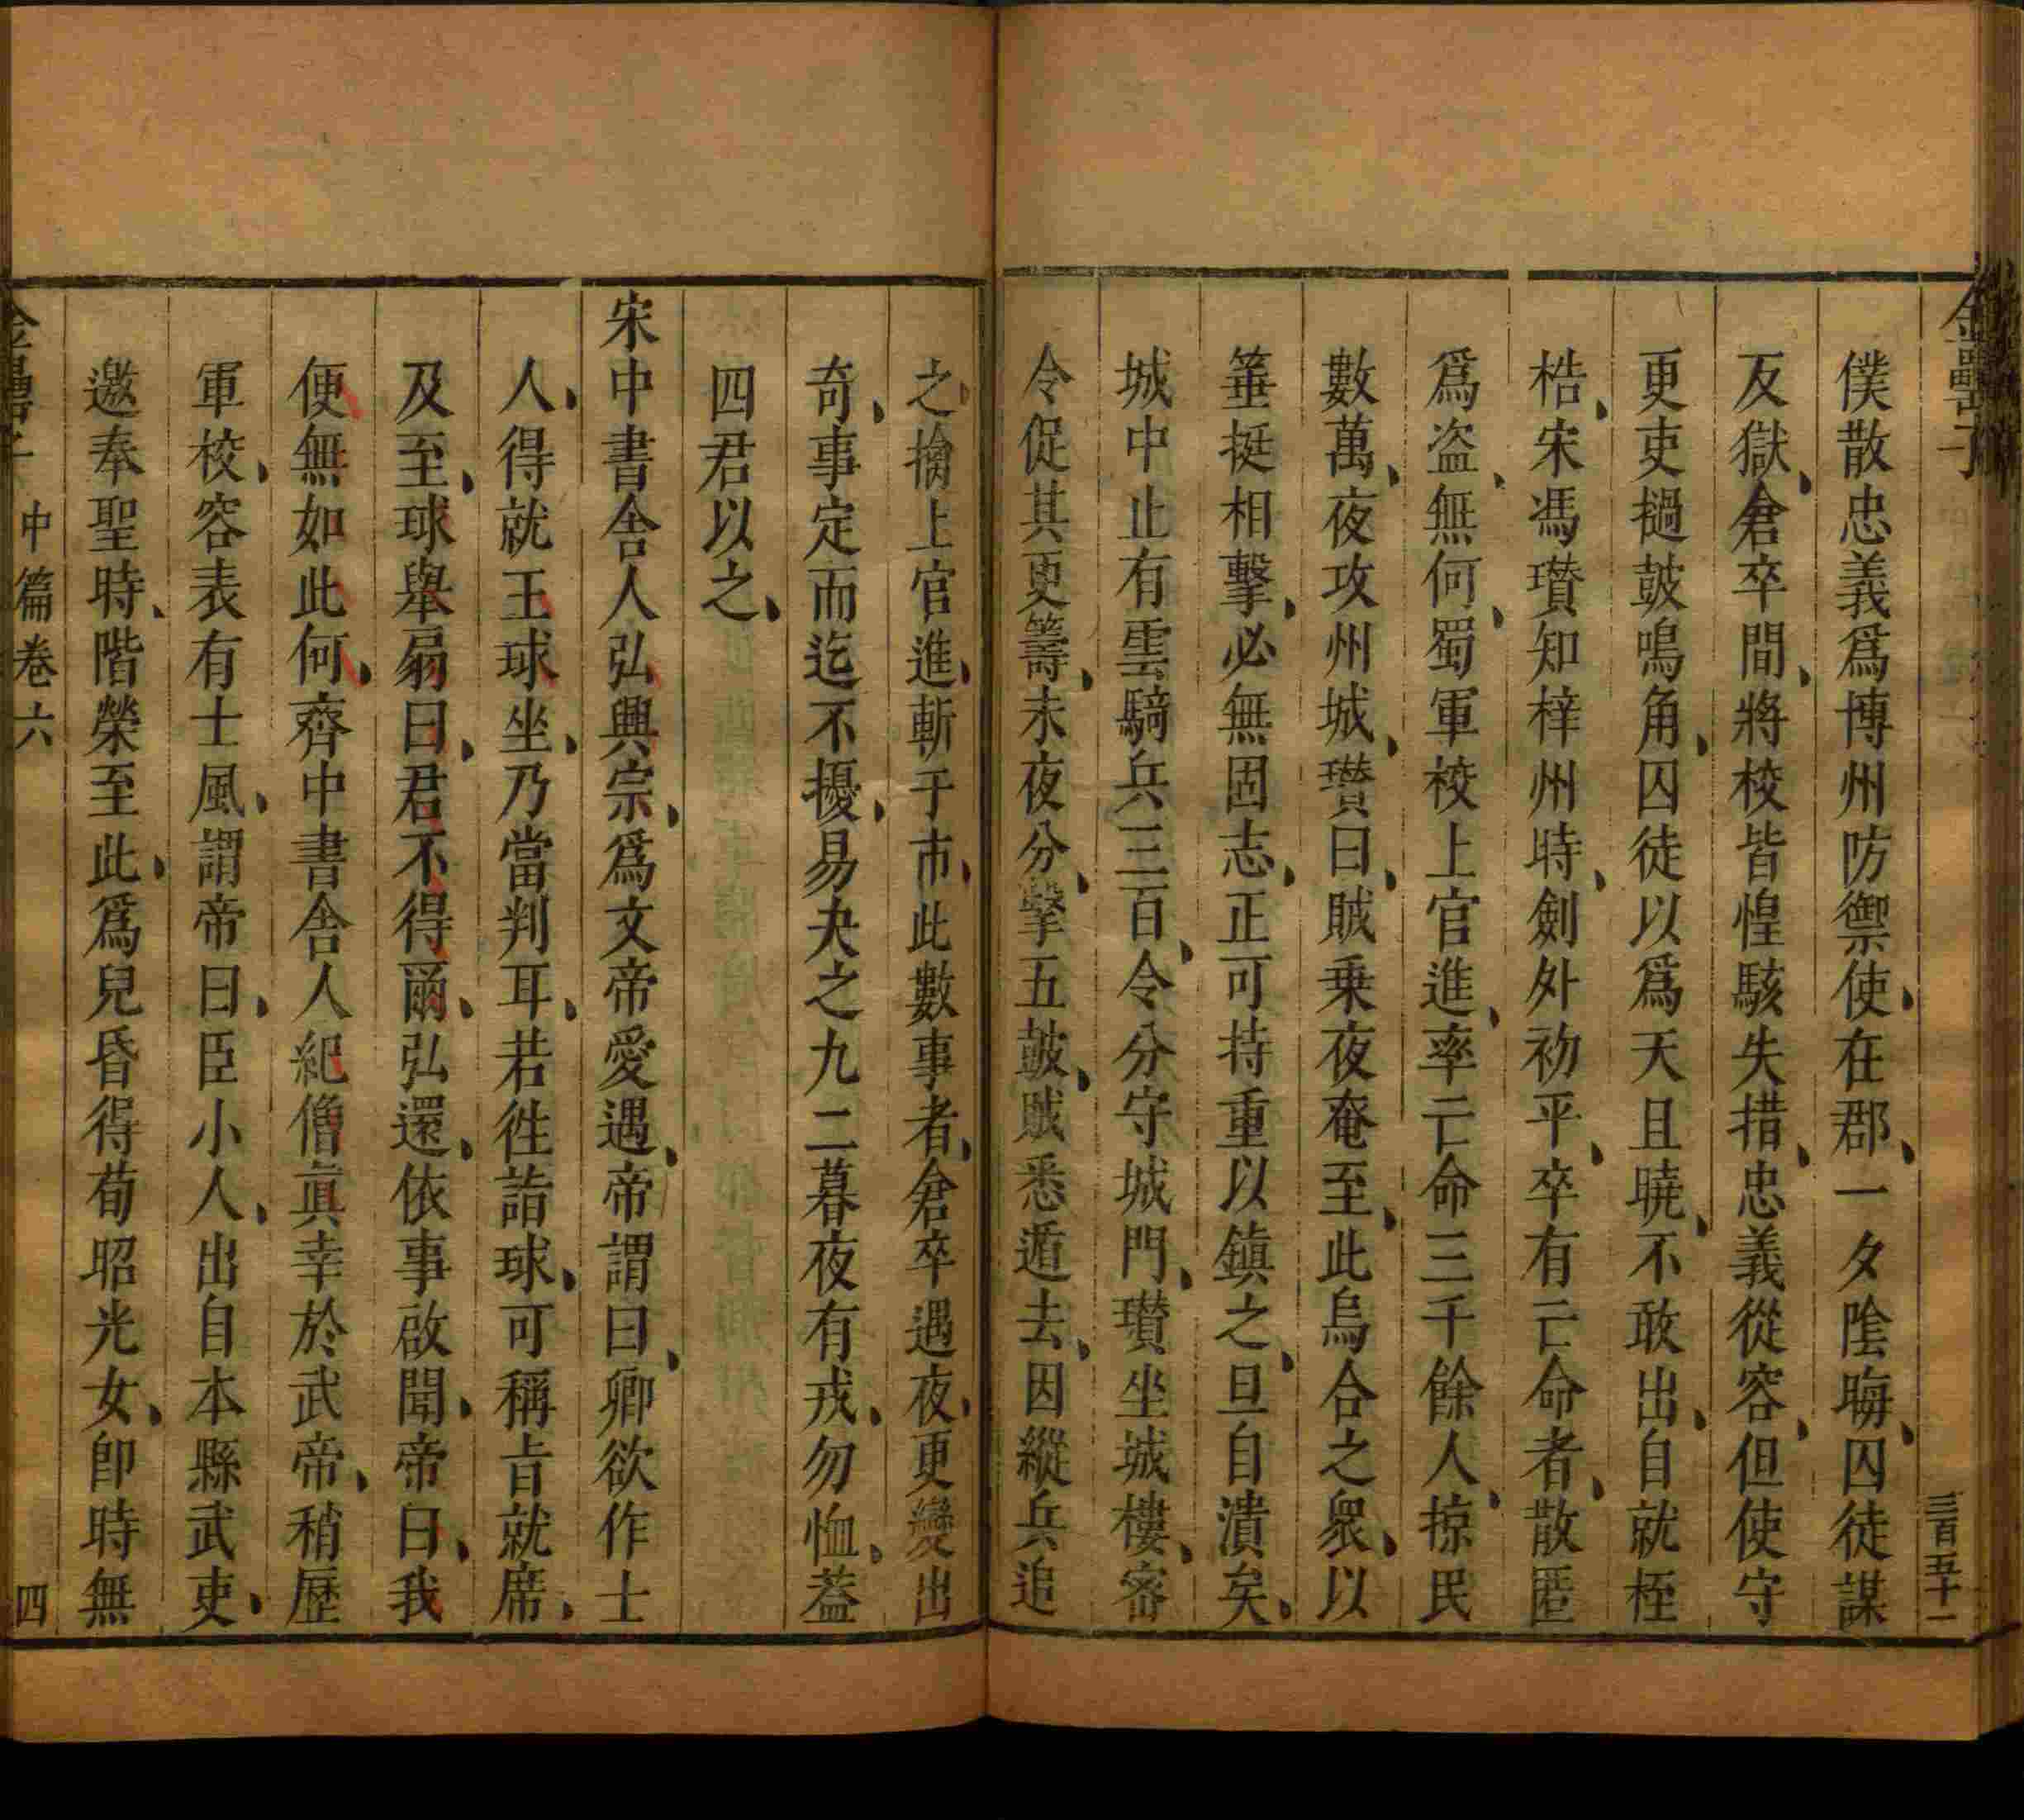 金罍子
三百五十一
僕散忠義爲博州防禦使、在郡、一夕陰晦、囚徒謀
反獄、倉卒間、將校皆惶駭失措、忠義從容、但使守
更吏撾鼓鳴角、囚徒以爲天且曉、不敢出、自就桎
梏、宋馮瓚知梓州時、劍外初平、卒有亡命者、散匿
爲盗、無何、蜀軍校上官進、率亡命三千餘人、掠民
數萬、夜攻州城、瓚曰、賊乗夜奄至、此烏合之衆、以
箠挺相擊、必無固志、正可持重以鎮之、旦自潰矣、
城中止有雲騎兵三百、令分守城門、瓚坐城樓、密
令促其更籌、未夜分、擊五鼓、賊悉遁去、因縱兵追
之、擒上官進、斬于市、此數事者、倉卒遇夜、更變出
奇、事定而迄不擾、易夬之九二暮夜有戎、勿恤、蓋
四君以之、
宋中書舎人弘興宗、爲文帝愛遇、帝謂曰、卿欲作士
人、得就王球坐、乃當判耳、若徃詣球、可稱旨就席、
及至、球舉扇曰、君不得爾、弘還、依事啟聞、帝曰、我
便無如此何、齊中書舎人紀僧眞幸於武帝、稍歷
軍校、容表有士風、謂帝曰、臣小人、出自本縣武吏、
邀奉聖時、階榮至此、爲兒昏得荀昭光女、卽時無
中篇卷六
四